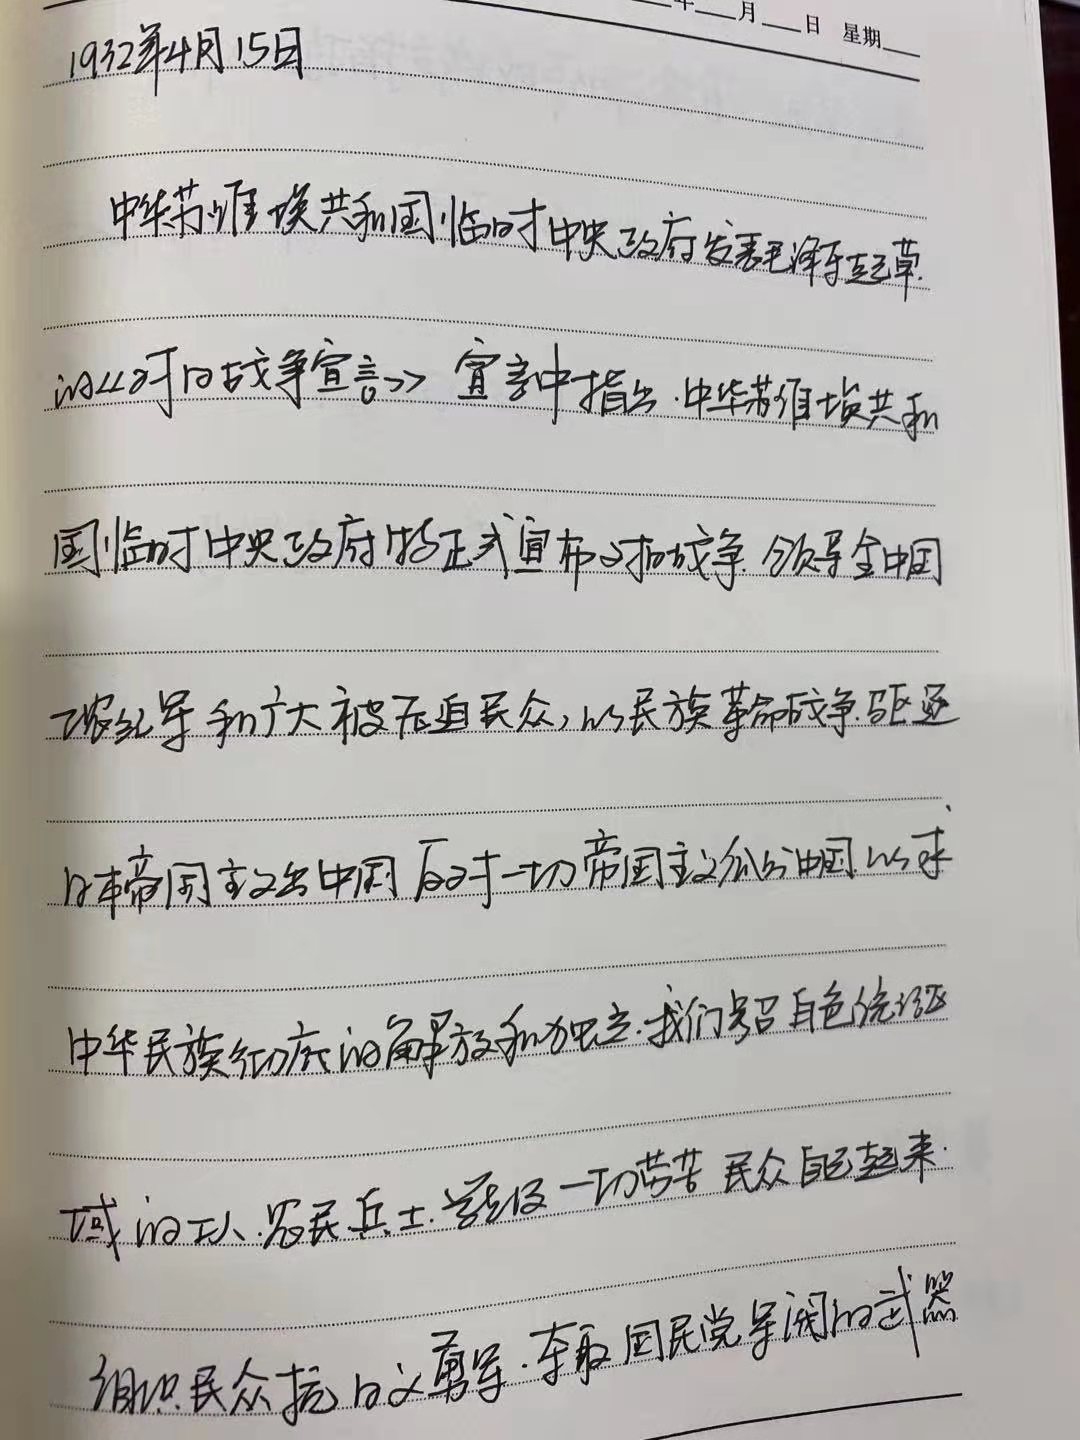 年 月 日 星期
1932年4月15日
中华苏维埃共和国临时中央政府发表毛泽东起草
的《对日战争宣言》 宣言中指出.中华苏维埃共和
国临时中央政府特正式宣布对日战争.领导全中国
工农红军和广大被压迫民众,以民族革命战争.驱逐
日本帝国主义出中国 反对一切帝国主义瓜分中国.以求
中华民族彻底的解放和独立.我们号召白色统治区
域的工人.农民.兵士.学生及一切劳苦民众自己起来.
组织民众抗日义勇军.夺取国民党军阀的武器